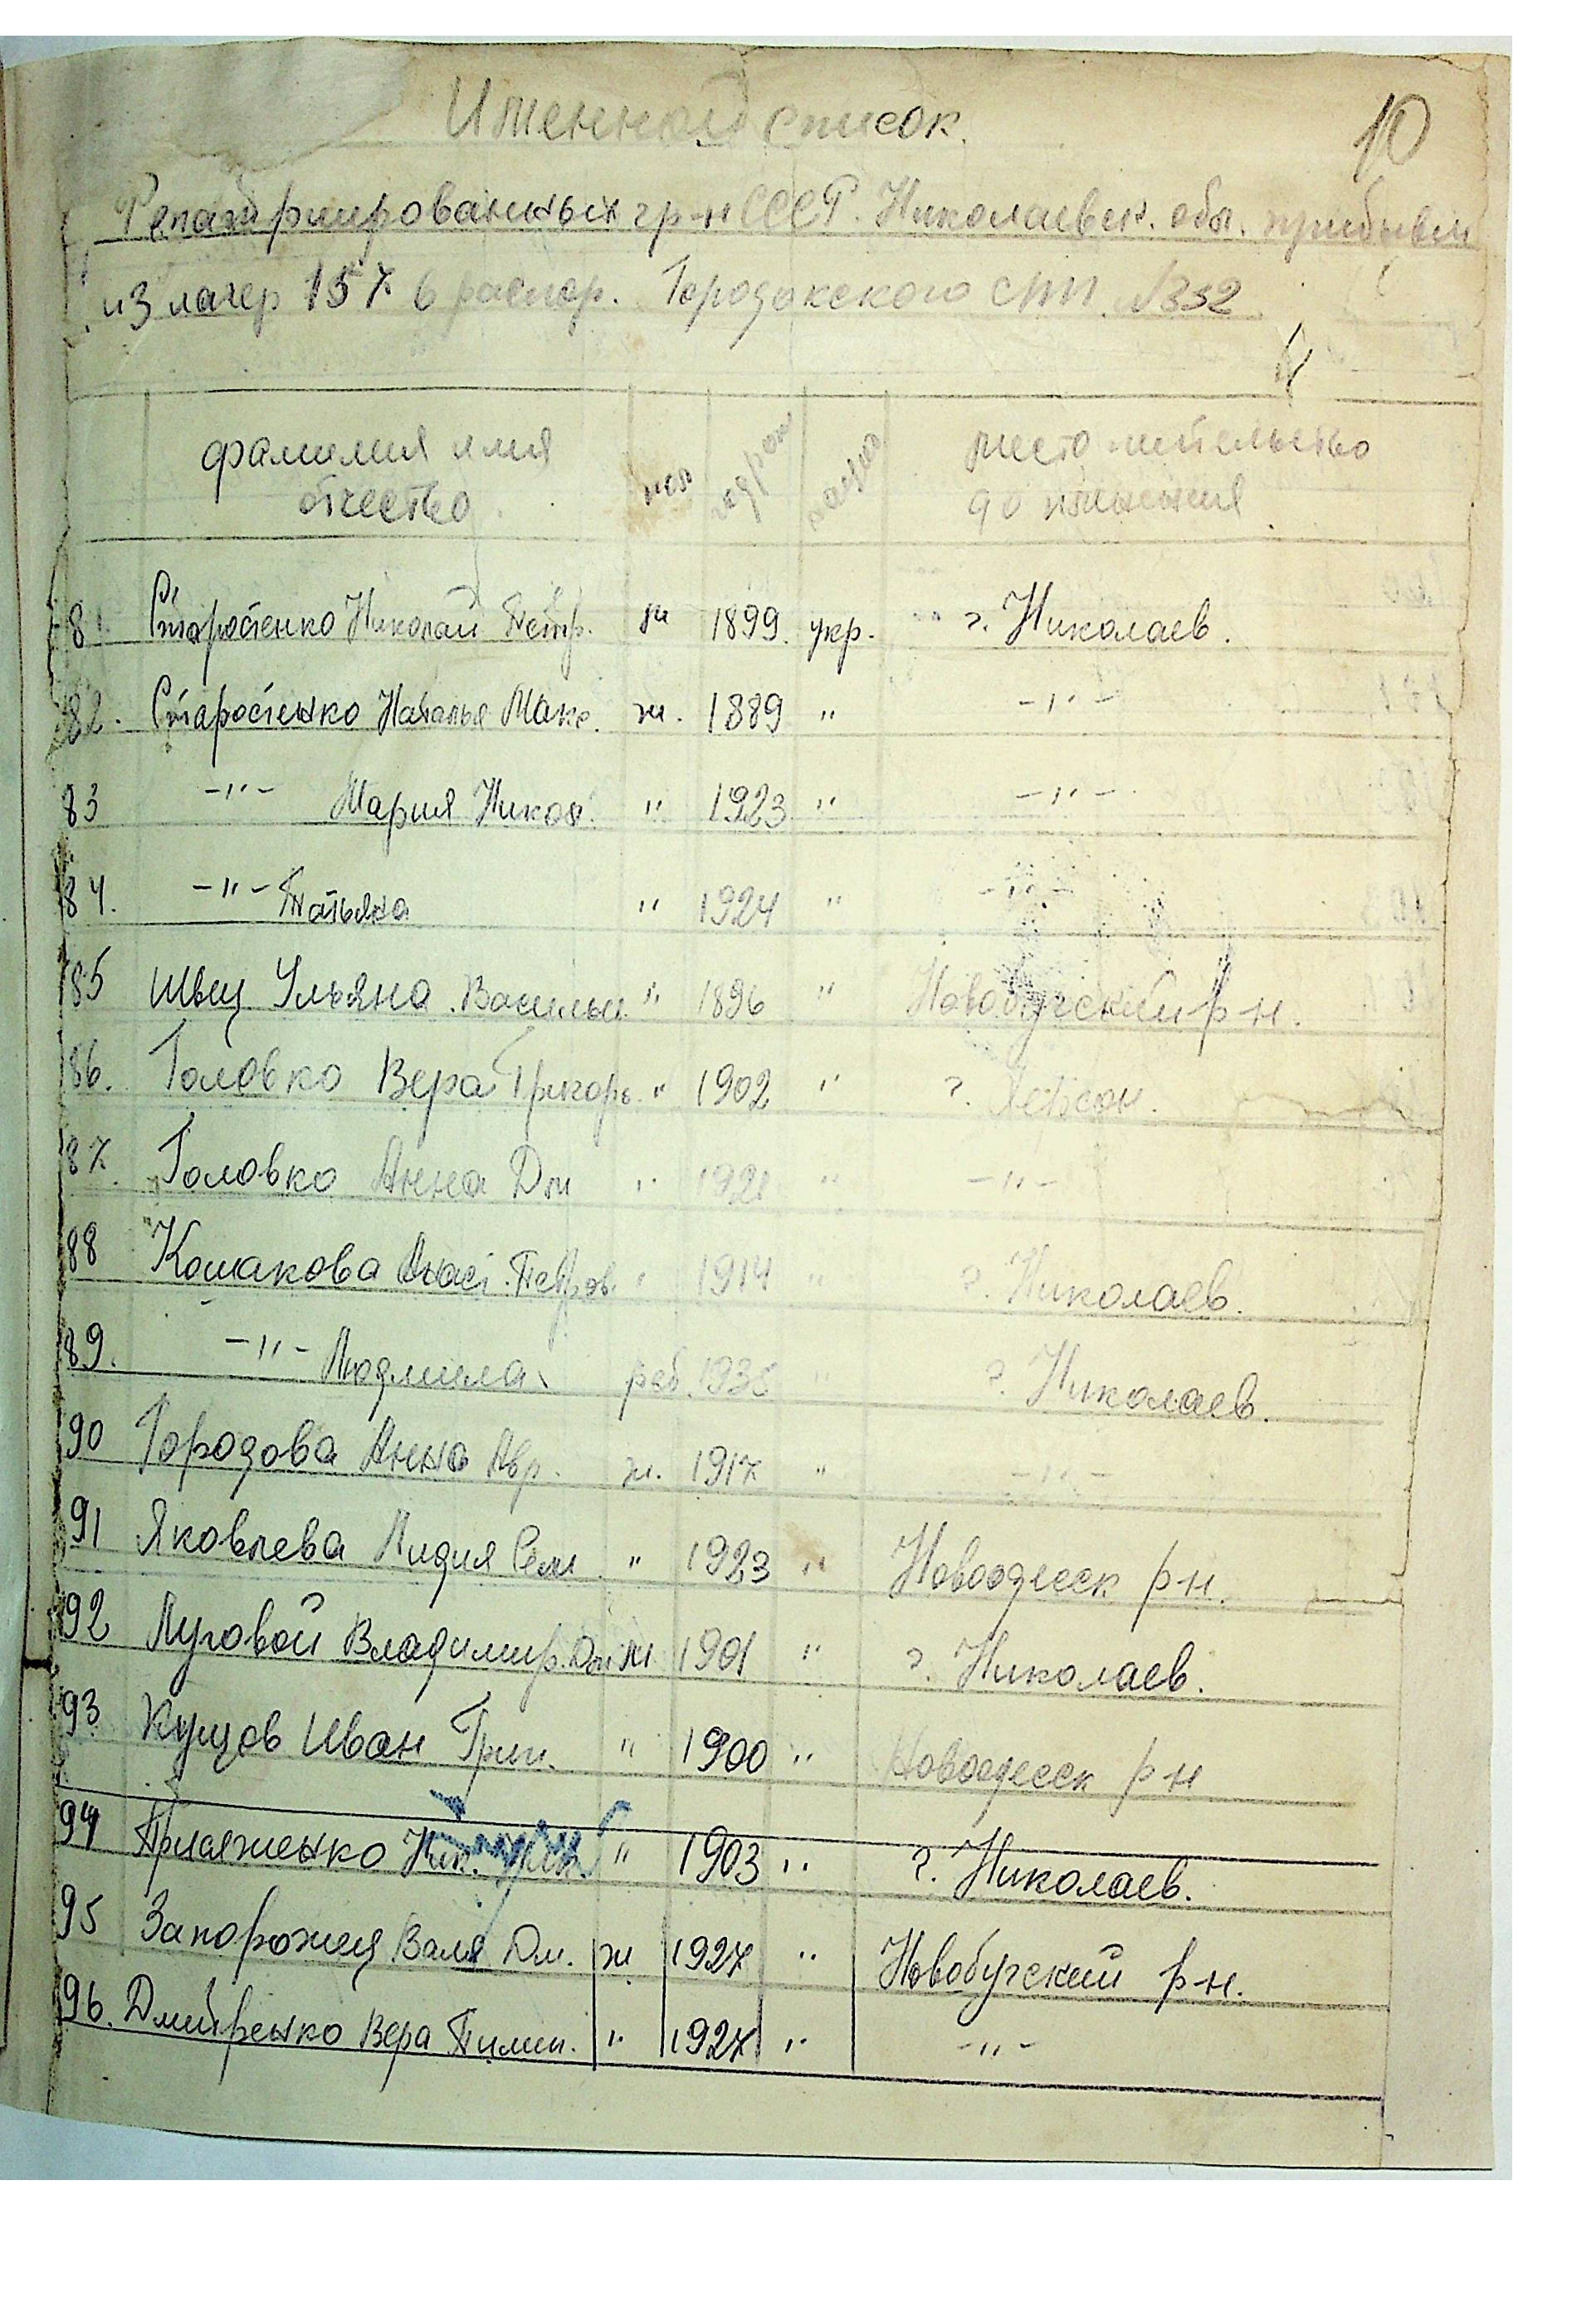 Именной список.
10
Репатриированных гр-н СССР. Николаевск. обл. прибывш
из лагер 157 в распор. Городокского СПП. №332
фамилия имя отчество пол год рож нацио место жительство до пленения
81. Старостенко Николай Петр. м 1899. укр. г. Николаев.
82. Старостенко Наталья Макс. ж. 1889 " -"-
83 -"- Мария Никол. " 1923 " -"-
84. -"- Татьяна " 1924 " -"-
85 Швец Ульяна Васильи. " 1896 " Новобугский р-н.
86. Головко Вера Григорь. " 1902 " г. Херсон.
87. Головко Анна Дм " 1921 " -"-
88 Комакова Анаст. Петров. " 1914 " г. Николаев.
89. -"- Людмила реб. 1935 " г. Николаев.
90 Городова Анна Авр. ж. 1917 " -"-
91 Яковлева Лидия Сем " 1923 " Новоодесск р-н.
92 Луговой Владимир. Дм м 1901 " г. Николаев.
93 Купцов Иван Григ. " 1900 " Новоодесск р-н
94 Приаженко Ник. " 1903 " г. Николаев.
95 Запорожец Валя Дм. ж 1927 " Новобугский р-н.
96. Дмитренко Вера Пилип. " 1927 " -"-